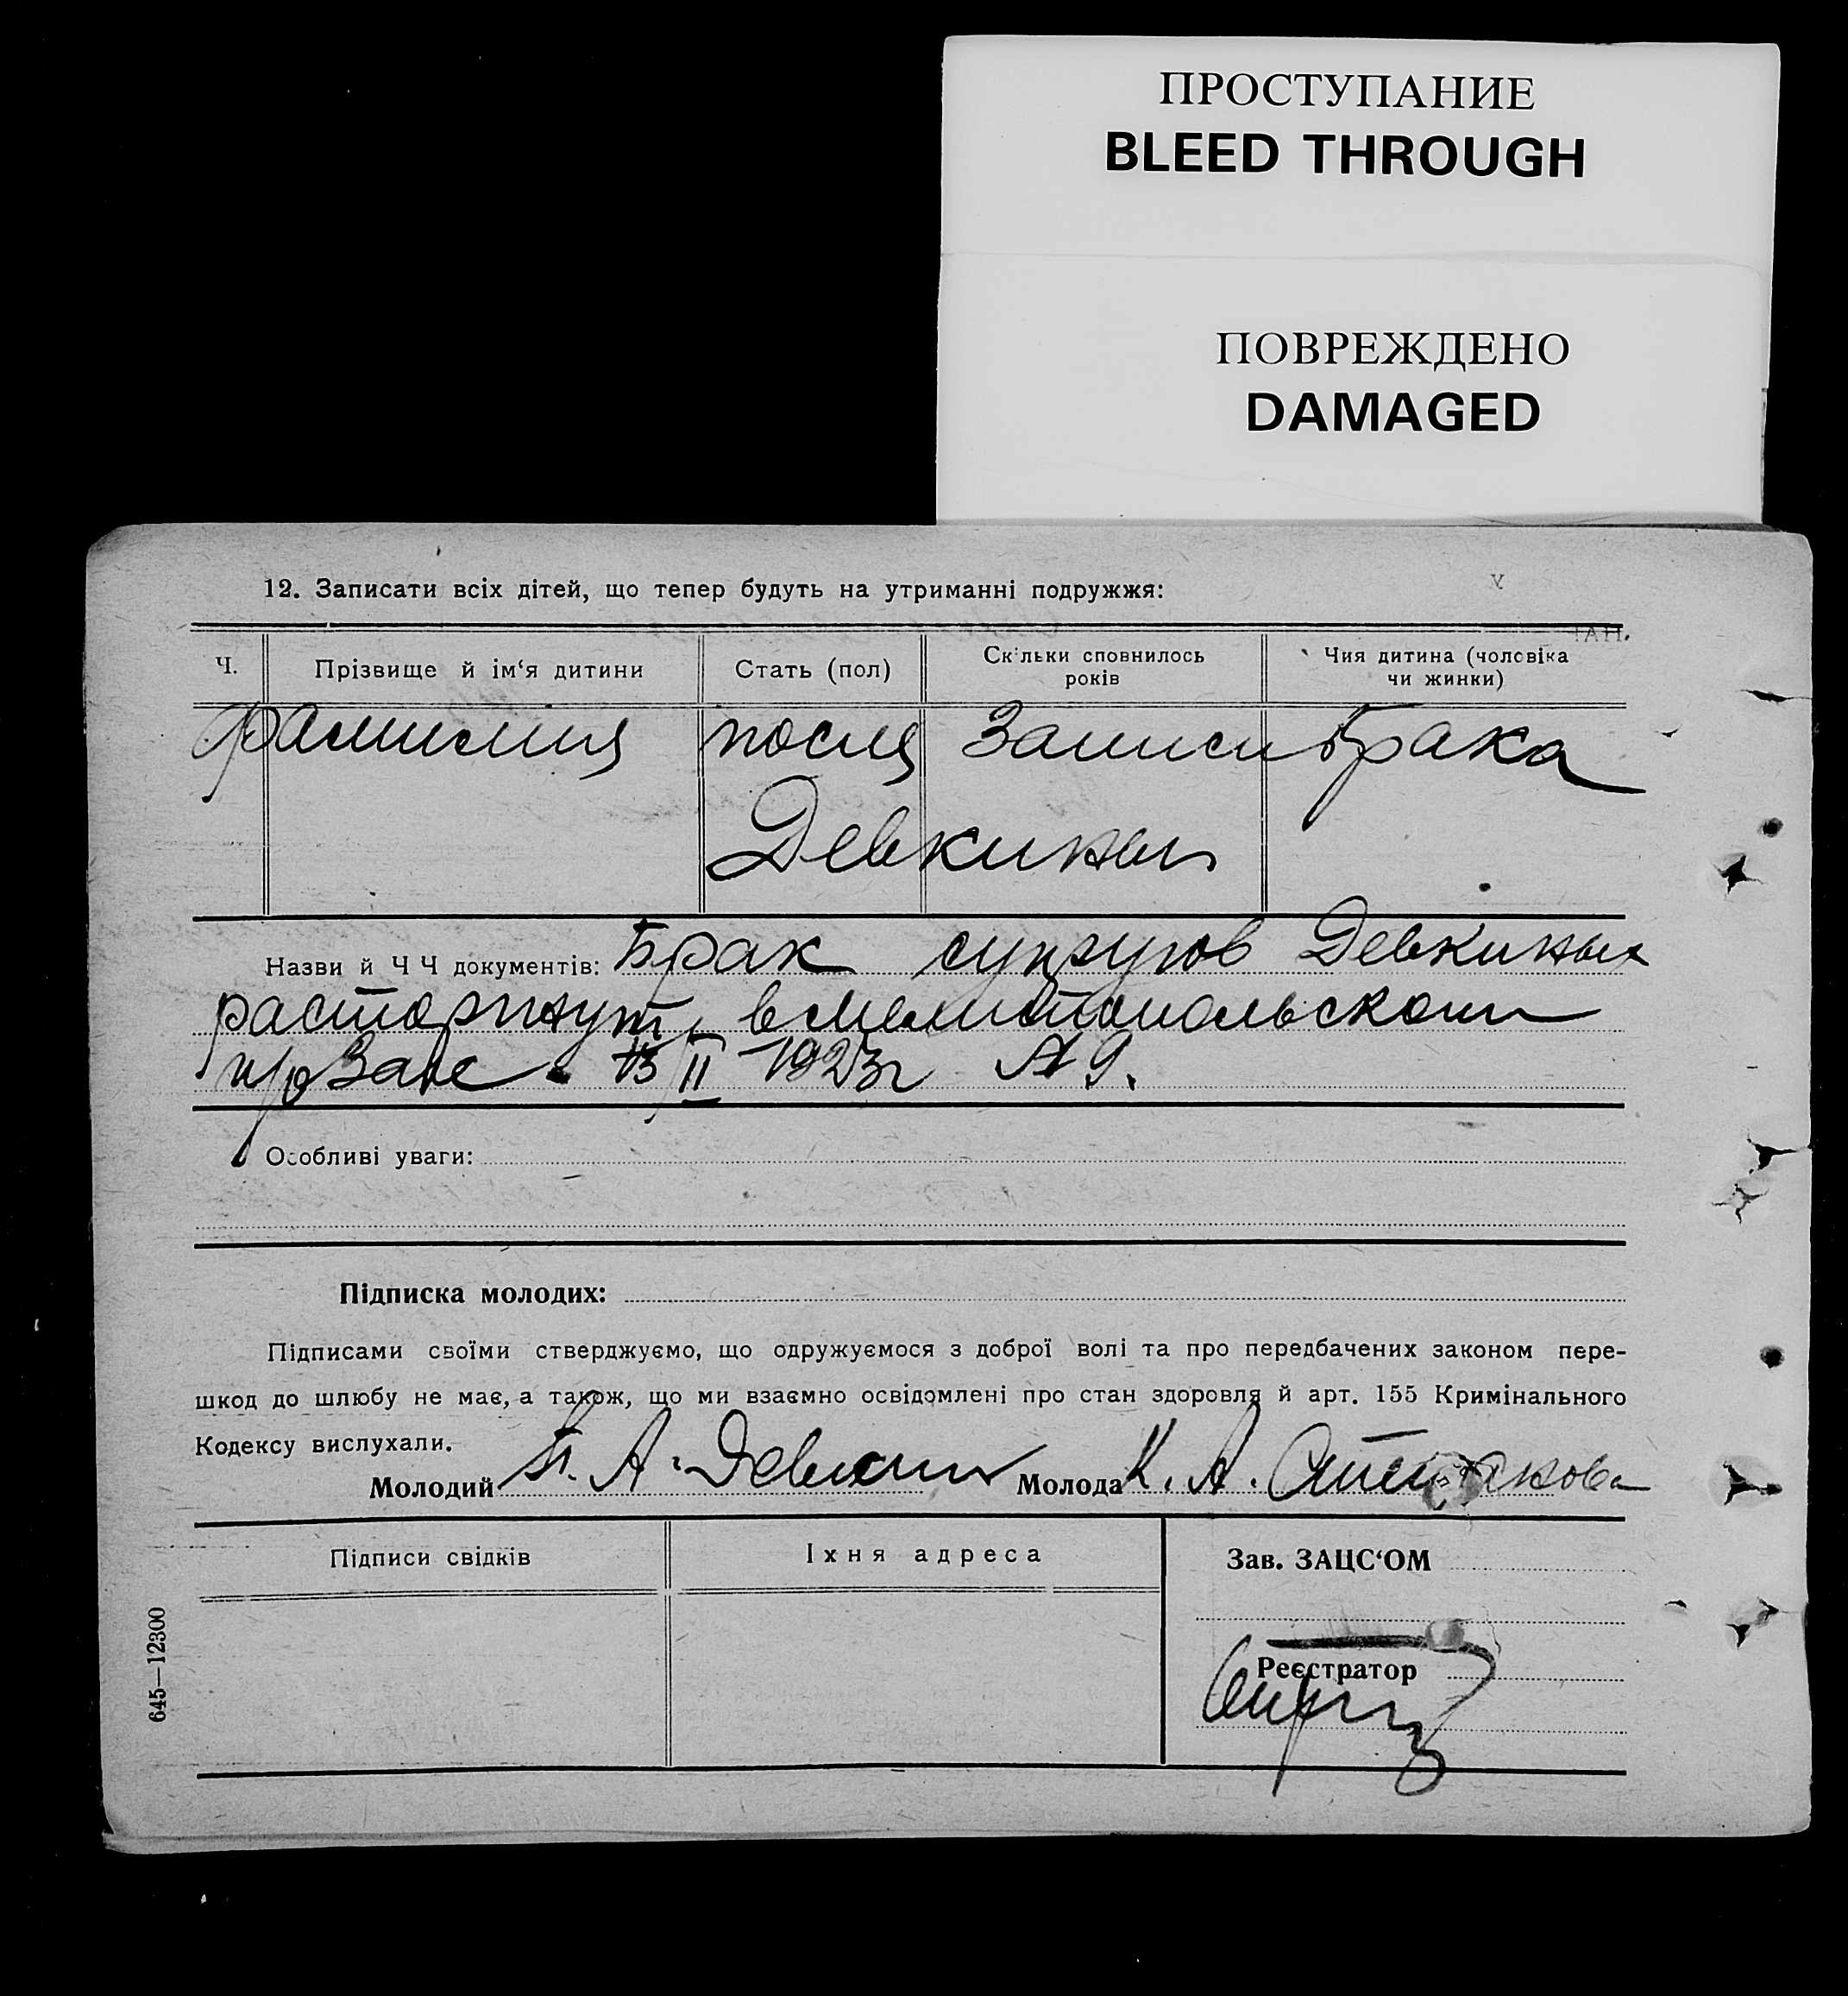 ПРОСТУПАНИЕ
BLEED THROUGH
ПОВРЕЖДЕНО
DAMAGED
12. Записати всіх дітей, що тепер будуть на утриманні подружжя:
Ч. Прізвище й ім‘я дитини Стать (пол) Скільки сповнилось років Чия дитина (чоловіка чи жинки)
фамилия после записи брака
Девкины
Назви й Ч Ч документів: Брак супругов Девкиных
расторгнут в мелитопольском
1923г
Особливі уваги:
Підписка молодих:
Підписами своїми стверджуємо, що одружуємося з доброї волі та про передбачених законом пере-
шкод до шлюбу не має, а також, що ми взаємно освідомлені про стан здоровля й арт. 155 Кримінального
Кодексу вислухали.
Молодий А. Девкин Молода К. А.
Підписи свідків Їхня адреса Зав. ЗАЦС‘ОМ
Реєстратор
645—12300